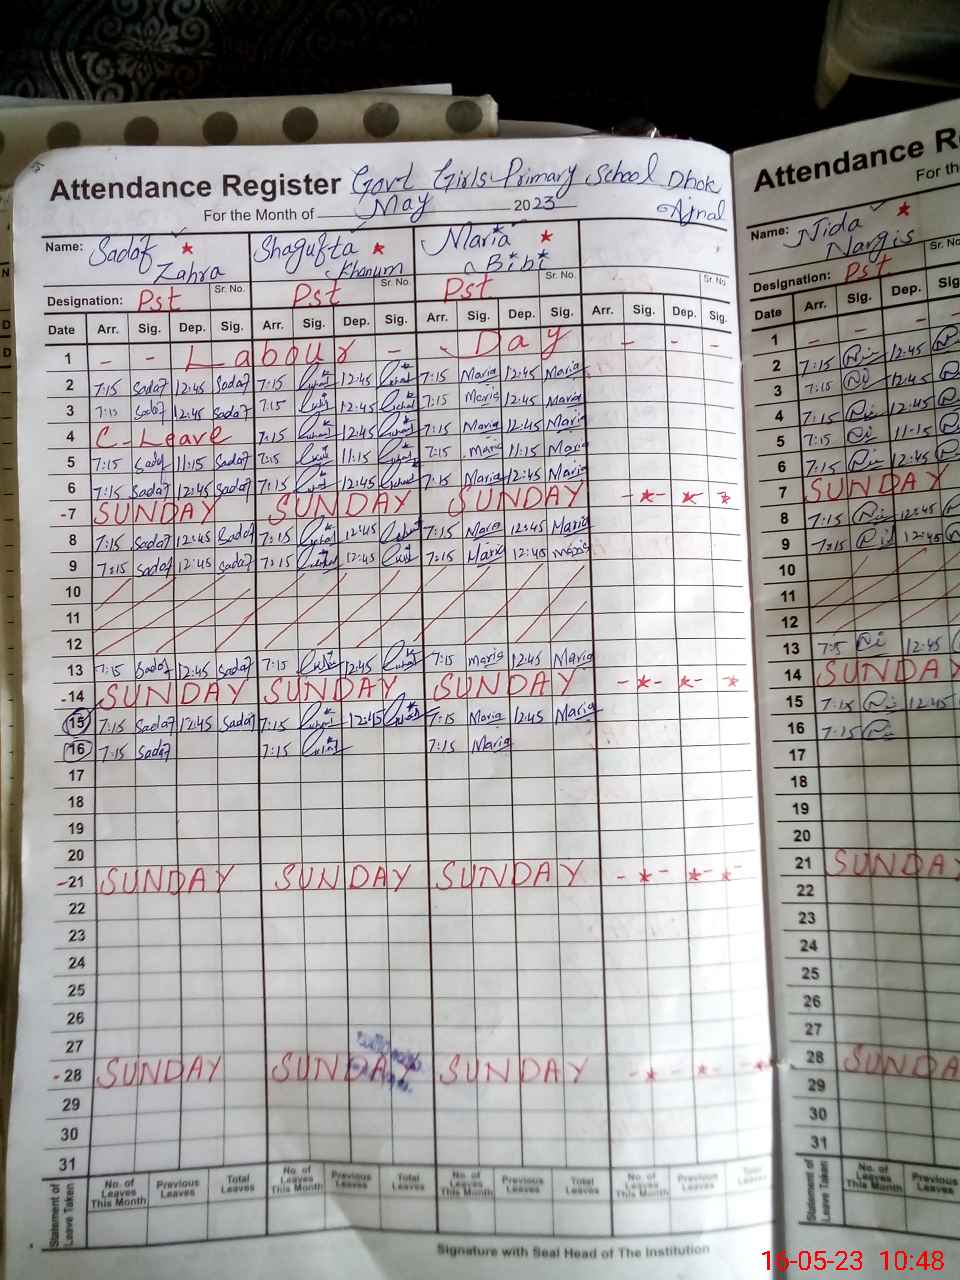 Attendance Register Govt Girls Primary School Dhok
Ajnal
For the Month of May 2023
Name: Sadaf Zahra Shagufta Khanum Maria Bibi
Sr. No. Sr. No. Sr. No. Sr. No.
Designation: Pst Pst Pst
Date Arr. Sig. Dep. Sig. Arr. Sig. Dep. Sig. Arr. Sig. Dep. Sig. Arr. Sig. Dep. Sig.
1 - - Labour - - Day - - -
2 7:15 Sadaf 12:45 Sadaf 7:15 12:45 7:15 Maria 12:45 Maria
3 7:15 Sadaf 12:45 Sadaf 7:15 12:45 7:15 Maria 12:45 Maria
4 C-Leave 7:15 12:45 7:15 Maria 12:45 Maria
5 7:15 Sadaf 11:15 Sadaf 7:15 11:15 7:15 Maria 11:15 Maria
6 7:15 Sadaf 12:45 Sadaf 7:15 12:45 7:15 Maria 12:45 Maria
-7 SUNDAY SUNDAY SUNDAY
8 7:15 Sadaf 12:45 Sadaf 7:15 12:45 7:15 Maria 12:45 Maria
9 7:15 Sadaf 12:45 Sadaf 7:15 12:45 7:15 Maria 12:45 Maria
10
11
12
13 7:15 Sadaf 12:45 Sadaf 7:15 12:45 7:15 Maria 12:45 Maria
-14 SUNDAY SUNDAY SUNDAY
15 7:15 Sadaf 12:45 Sadaf 7:15 12:45 7:15 Maria 12:45 Maria
16 7:15 Sadaf 7:15 7:15 Maria
17
18
19
20
-21 SUNDAY SUNDAY SUNDAY
22
23
24
25
26
27
-28 SUNDAY SUNDAY SUNDAY
29
30
31
Statement of Leave Taken
No. of Leaves This Month Previous Leaves Total Leaves No. of Leaves This Month Previous Leaves Total Leaves No. of Leaves This Month Previous Leaves Total Leaves No. of Leaves This Month Previous Leaves Total Leaves
Signature with Seal Head of The Institution
Attendance Re
For th
Name: Nida Nargis
Sr. No.
Designation: Pst
Date Arr. Sig. Dep. Sig
1 - - -
2 7:15 12:45
3 7:15 12:45
4 7:15 12:45
5 7:15 11:15
6 7:15 12:45
7 SUNDAY
8 7:15 12:45
9 7:15 12:45
10
11
12
13 7:15 12:45
14 SUNDAY
15 7:15 12:45
16 7:15
17
18
19
20
21 SUNDAY
22
23
24
25
26
27
28 SUNDA
29
30
31
Statement of Leave Taken
No. of Leaves This Month Previous Leaves
16-05-23 10:48